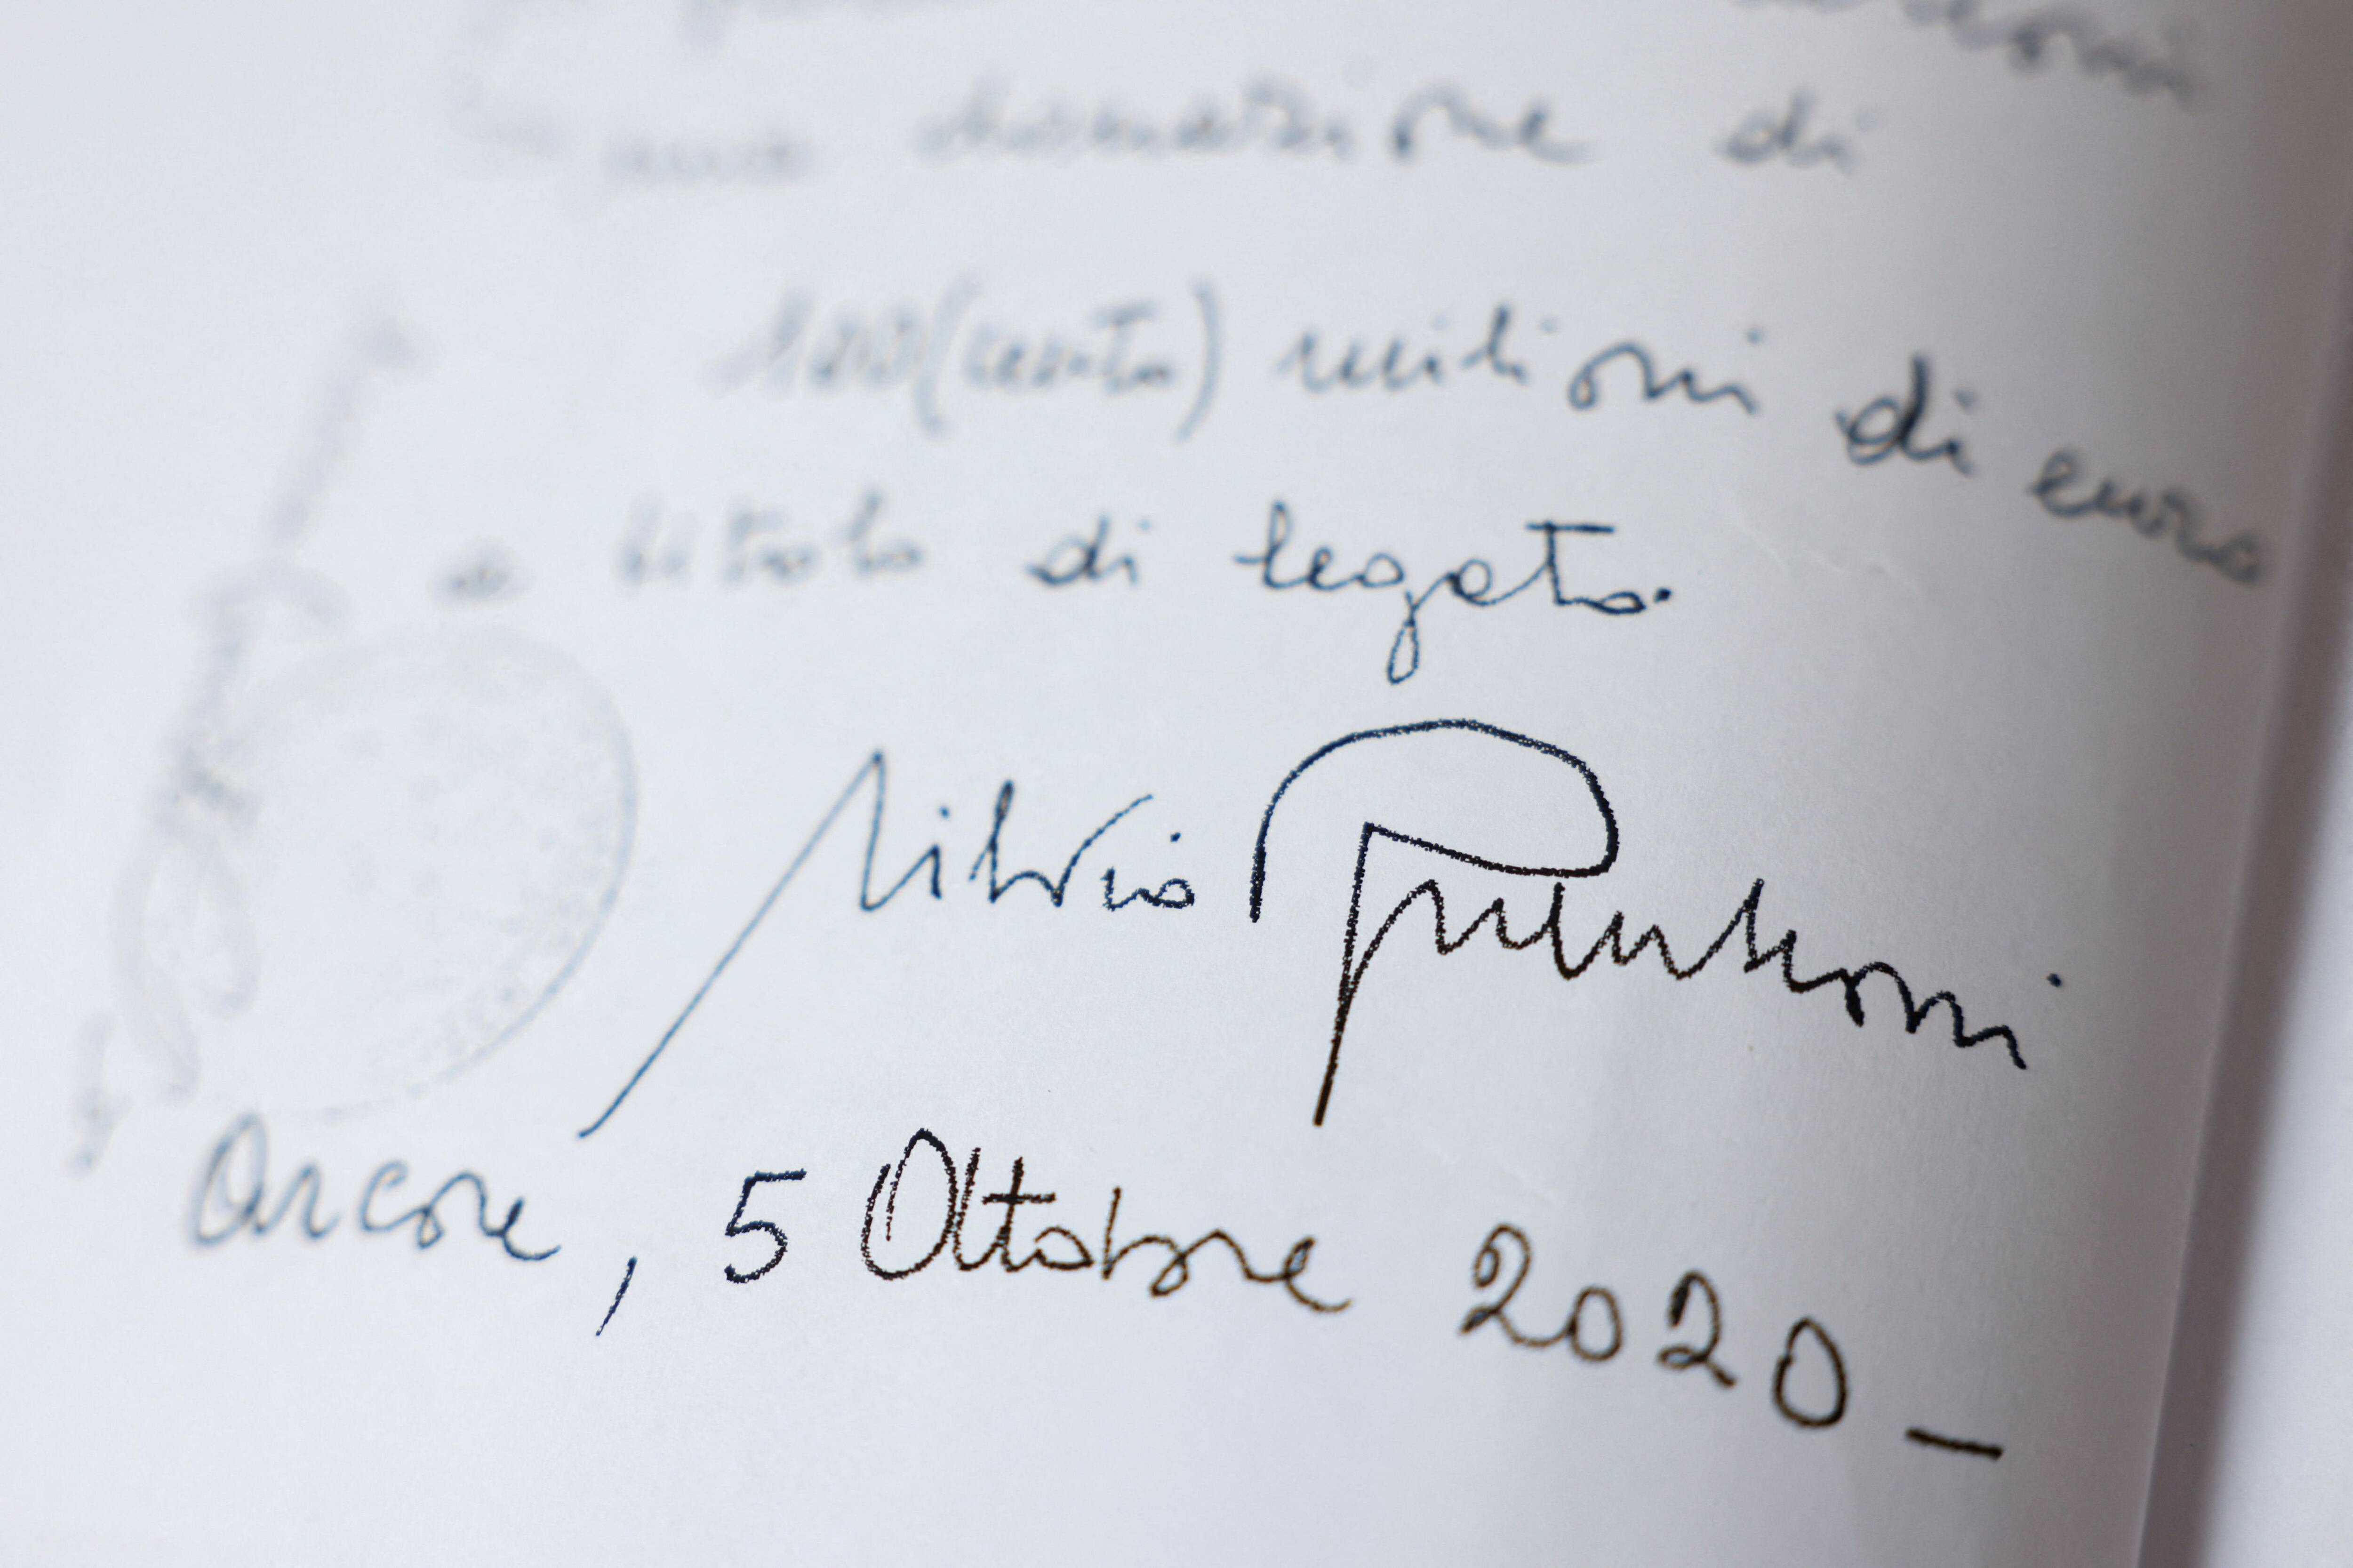 una donazione di
100 (cento) milioni di euro
a titolo di legato.
Silvio Berlusconi
Arcore, 5 Ottobre 2020 -